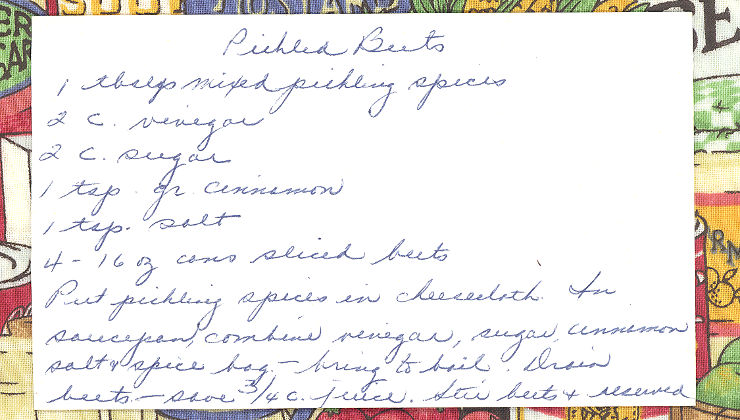 Pickled Beets
1 tblsps mixed pickling spices
2 c. vinegar
2 c. sugar
1 tsp gr cinnamon
1 tsp. salt
4 - 16 oz cans sliced beets
Put pickling spices in cheesecloth. In
saucepan, combine vinegar, sugar, cinnamon
salt & spice bag - bring to boil. Drain
beets - save 3/4 c. juice. Stir beets & reserved